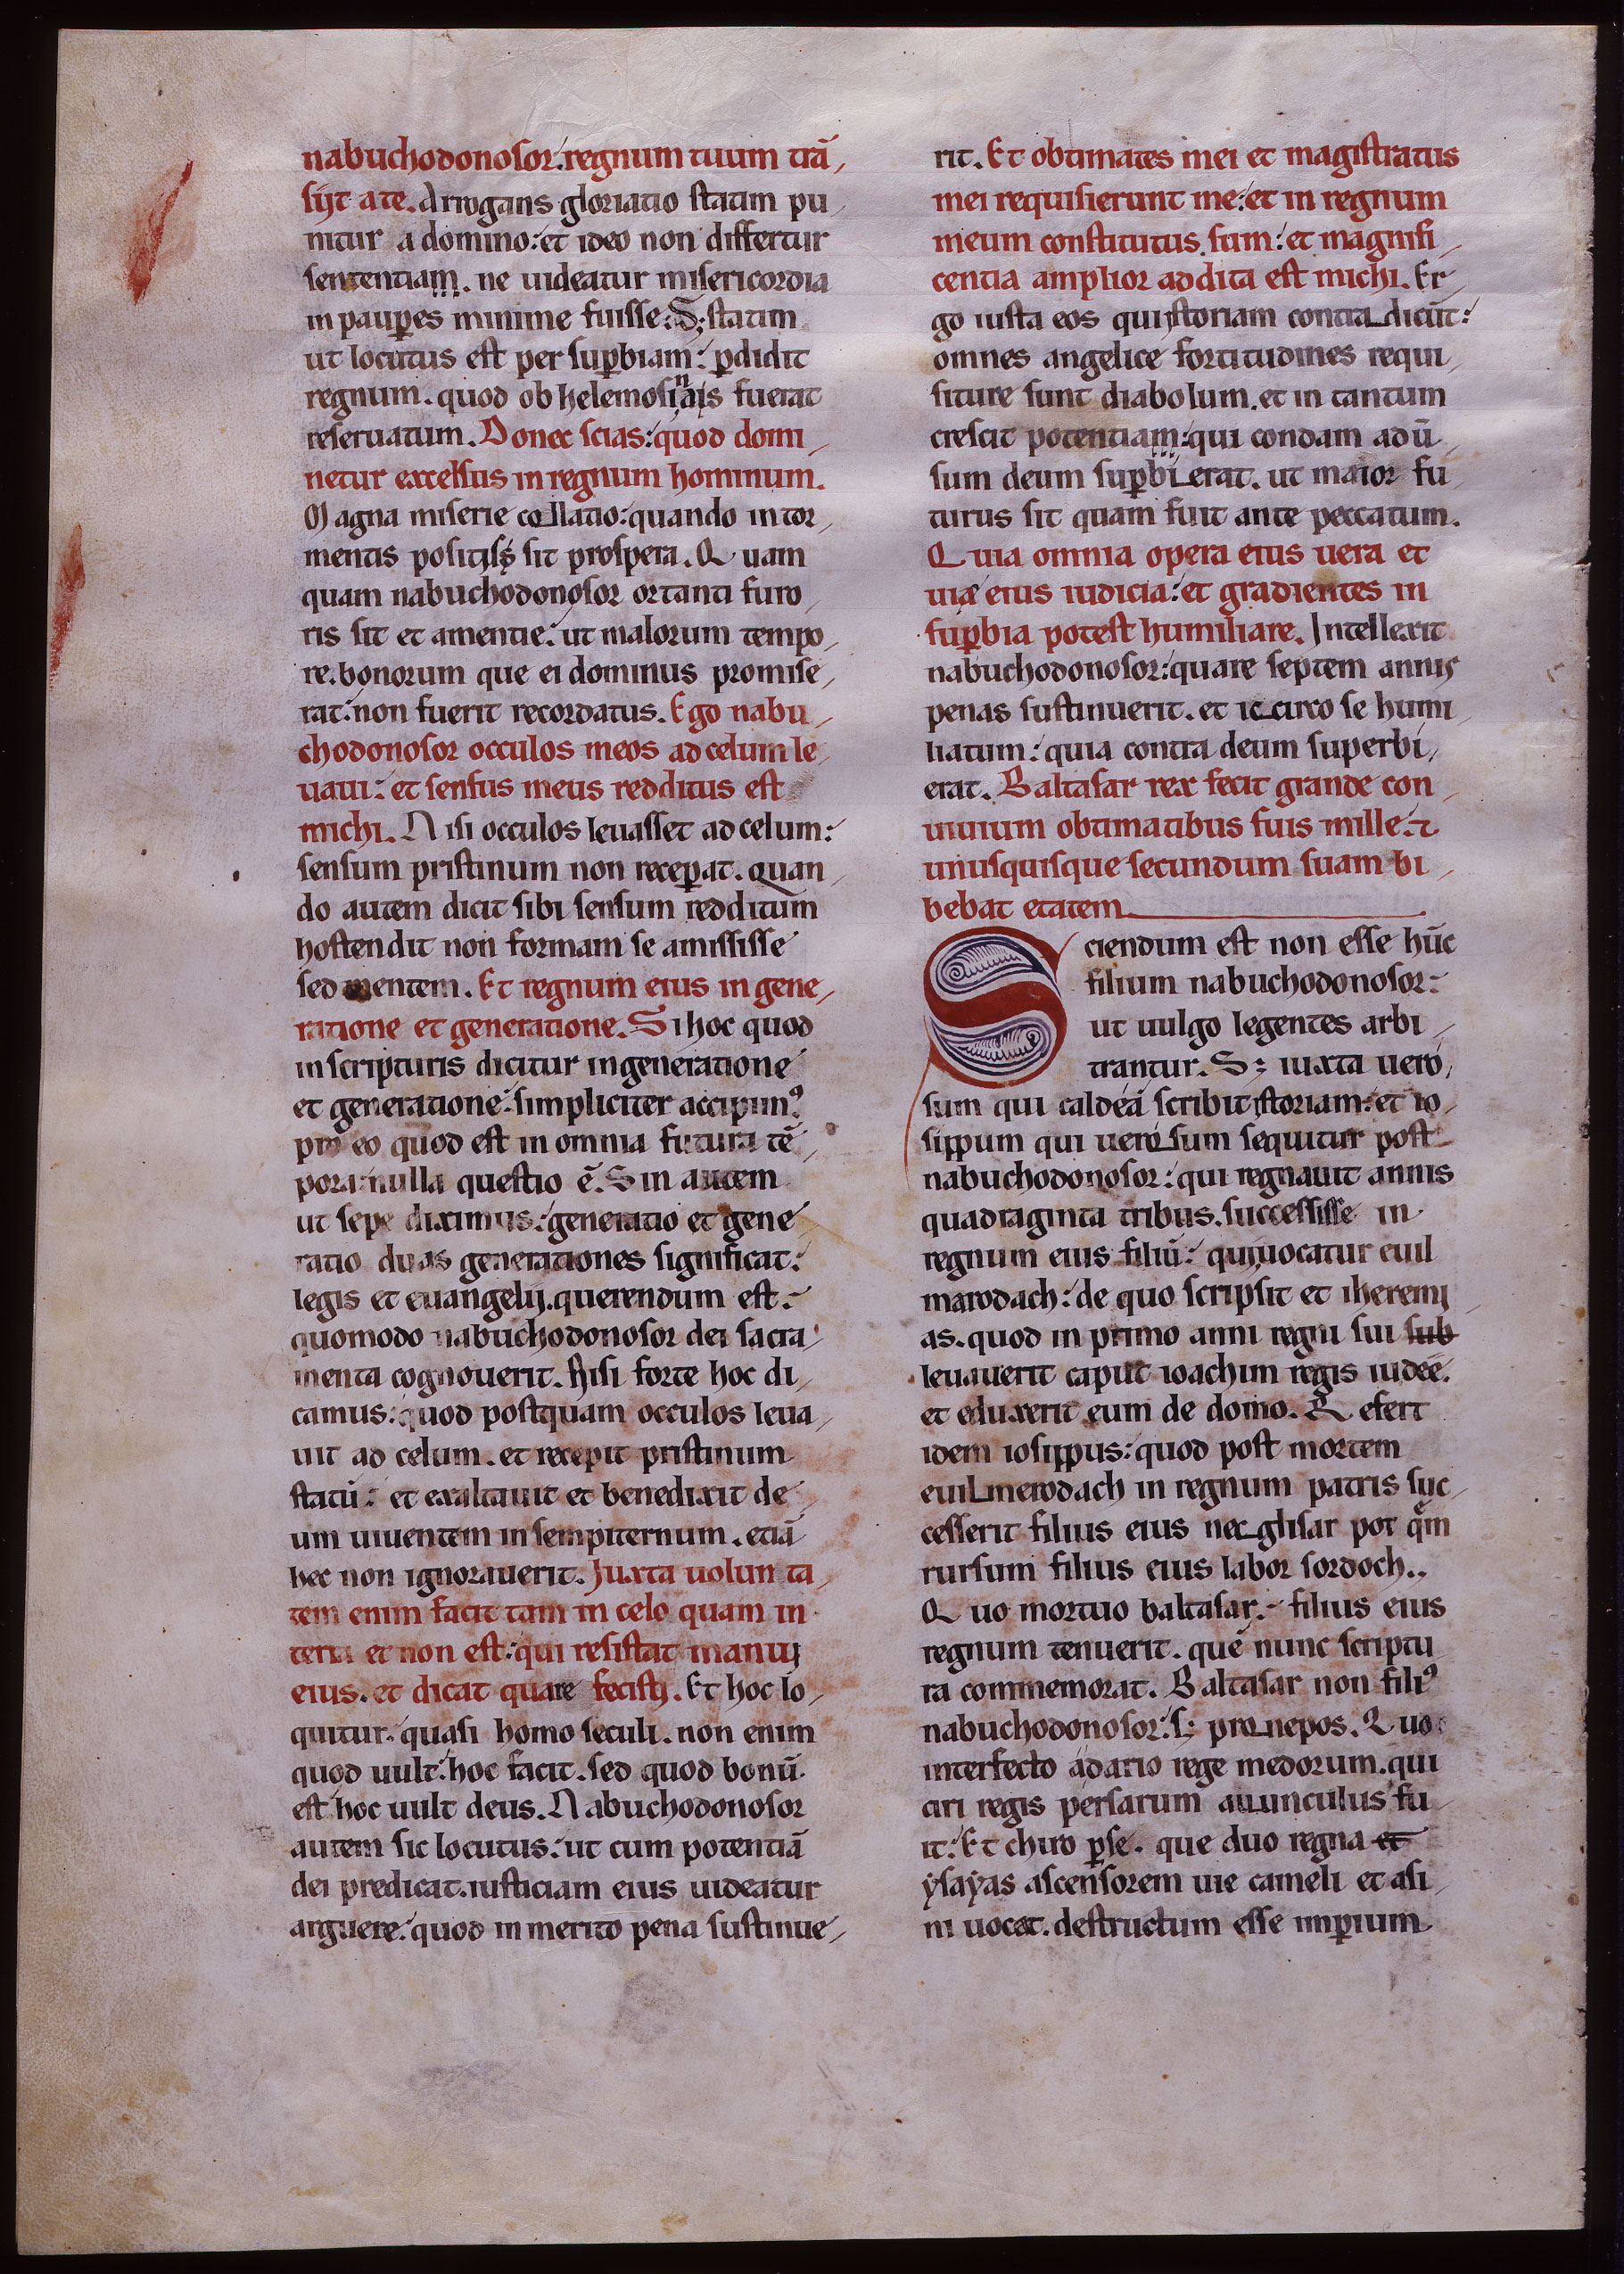 nabuchodonosor: regnum tuum trā
sijt a te. Arrogans gloriatio statim pu
nitur a domino: et ideo non differtur
sententiam. ne uideatur misericordia
in paup̄es minime fuisse: S; statim
ut locutus est per sup̄biam: p̄didit
regnum. quod ob helemosinais fuerat
reseruatum. Donec scias: quod domi
netur excelsus in regnum hominum.
Magna miserie collatio: quando in tor
mentis positis sit prospera. Quam
quam nabuchodonosor ortanti furo
ris sit et amentie: ut malorum tempo
re. bonorum que ei dominus promise
rat: non fuerit recordatus. Ego nabu
chodonosor occulos meos ad celum le
uaui: et sensus meus redditus est
michi. Nisi occulos leuasset ad celum:
sensum pristinum non recep̄at. quan
do autem dicit sibi sensum redditum
hostendit non formam se amississe
sed mentem. Et regnum eius in gene
ratione et generatione. Si hoc quod
in scripturis dicitur in generatione
et generatione: simpliciter accipimꝰ
pro eo quod est in omnia futura tē
pora: nulla questio ē. Sin autem
ut sepe diximus: generatio et gene
ratio duas generationes significat:
legis et euangelij. querendum est:
quomodo nabuchodonosor dei sacra
menta cognouerit. Nisi forte hoc di
camus: quod postquam occulos leua
uit ad celum. et recepit pristinum
statū: et exaltauit et benedixit de
um uiuentem in sempiternum. etiā
hec non ignorauerit. Juxta uolunta
tem enim facit tam in celo quam in
terra et non est: qui resistat manuj
eius. et dicat quare fecistj. Et hoc lo
quitur. quasi homo seculi. non enim
quod uult: hoc facit. sed quod bonū
est hoc uult deus. Nabuchodonosor
autem sic locutus: ut cum potentiā
dei predicat. iusticiam eius uideatur
arguere: quod in merito pena sustinue
rit. Et obtimates mei et magistratus
mei requisierunt me: et in regnum
meum constitutus sum: et magnifi
centia amplior addita est michi. Er
go iusta eos qui istoriam contra dicūt:
omnes angelice fortitudines requi
siture sunt diabolum. et in tantum
crescit potentiam: qui condam adū
sum deum sup̄bi erat. ut maior fu
turus sit quam fuit ante peccatum.
Quia omnia opera eius uera et
uiae eius iudicia: et gradientes in
sup̄bia potest humiliare. Intellexit
nabuchodonosor: quare septem annis
penas sustinuerit. et iccirco se humi
liatum: quia contra deum superbi
erat. Baltasar rex fecit grande con
uiuium obtimatibus suis mille: ⁊
unusquisque secundum suam bi
bebat etatem
Sciendum est non esse hūc
filium nabuchodonosor:
ut uulgo legentes arbi
trantur. S; iuxta uero
sum qui caldeā scribit istoriam: et io
sippum qui uero sum sequitur post
nabuchodonosor: qui regnauit annis
quadraginta tribus. successisse in
regnum eius filiū: qui uocatur euil
marodach: de quo scripsit et iheremi
as. quod in primo anni regni sui sub
leuauerit caput ioachim regis iudee.
et eduxerit eum de domo. Refert
idem iosippus: quod post mortem
euilmerodach in regnum patris suc
cesserit filius eius nec glisar pot q̄m
rursum filius eius labor sordoch..
Quo mortuo baltasar. filius eius
regnum tenuerit. quē nunc scriptu
ra commemorat. Baltasar non filiꝰ
nabuchodonosor: s; pro nepos. Quo
interfecto a dario rege medorum. qui
ciri regis persarum auunculus fu
it: Et chiro p̄se. que duo regna et
ysayas ascensorem uie cameli et asi
ni uocat. destructum esse imp̄ium